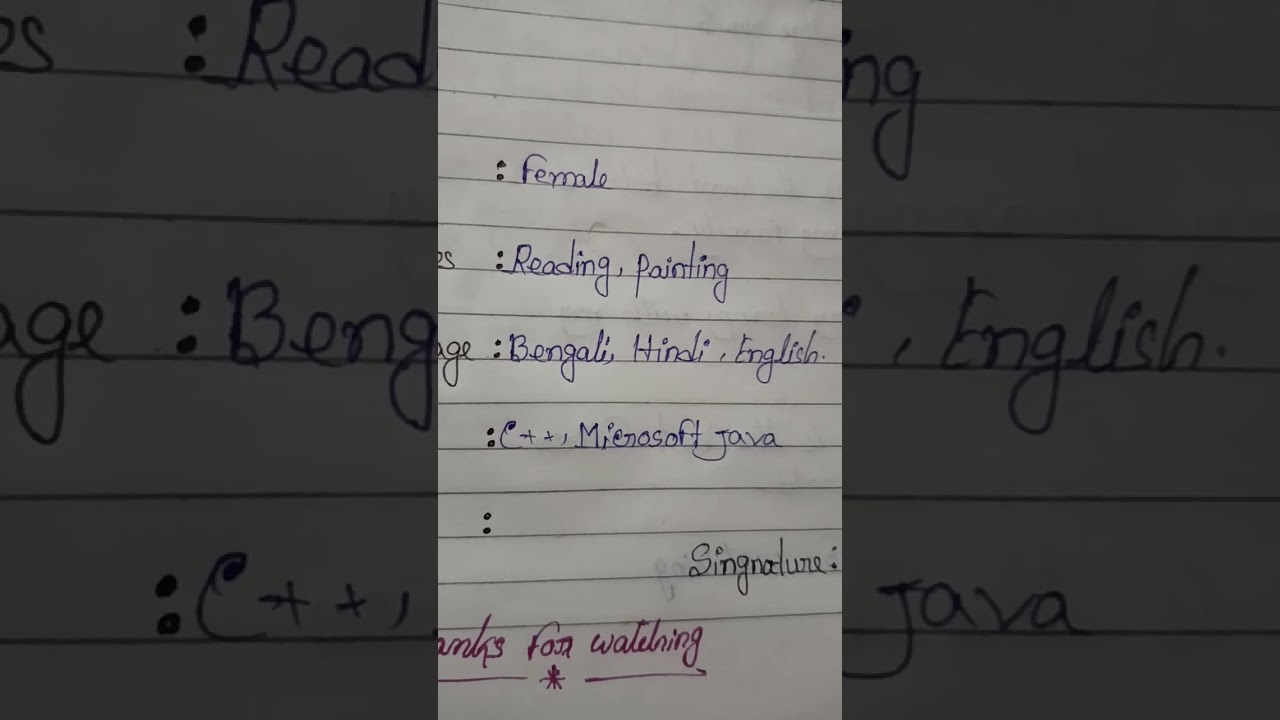 : Female
es : Reading, Painting
age : Bengali, Hindi, English.
: C++, Microsoft Java
:
Singnature:
anks for watching